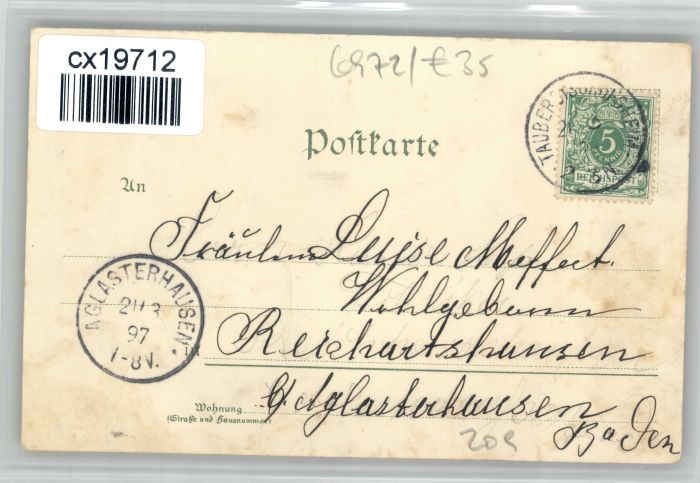 cx19712
6972/€35
TAUBERBISCHOFSHEIM
5
PFENNIG
REICHSPOST
Postkarte
An
Fräulein Luise Meffert.
Wohlgeborn
Reichartshausen
b/Aglasterhausen
Baden
AGLASTERHAUSEN
97
7-8V.
Wohnung
(Straße und Hausnummer)